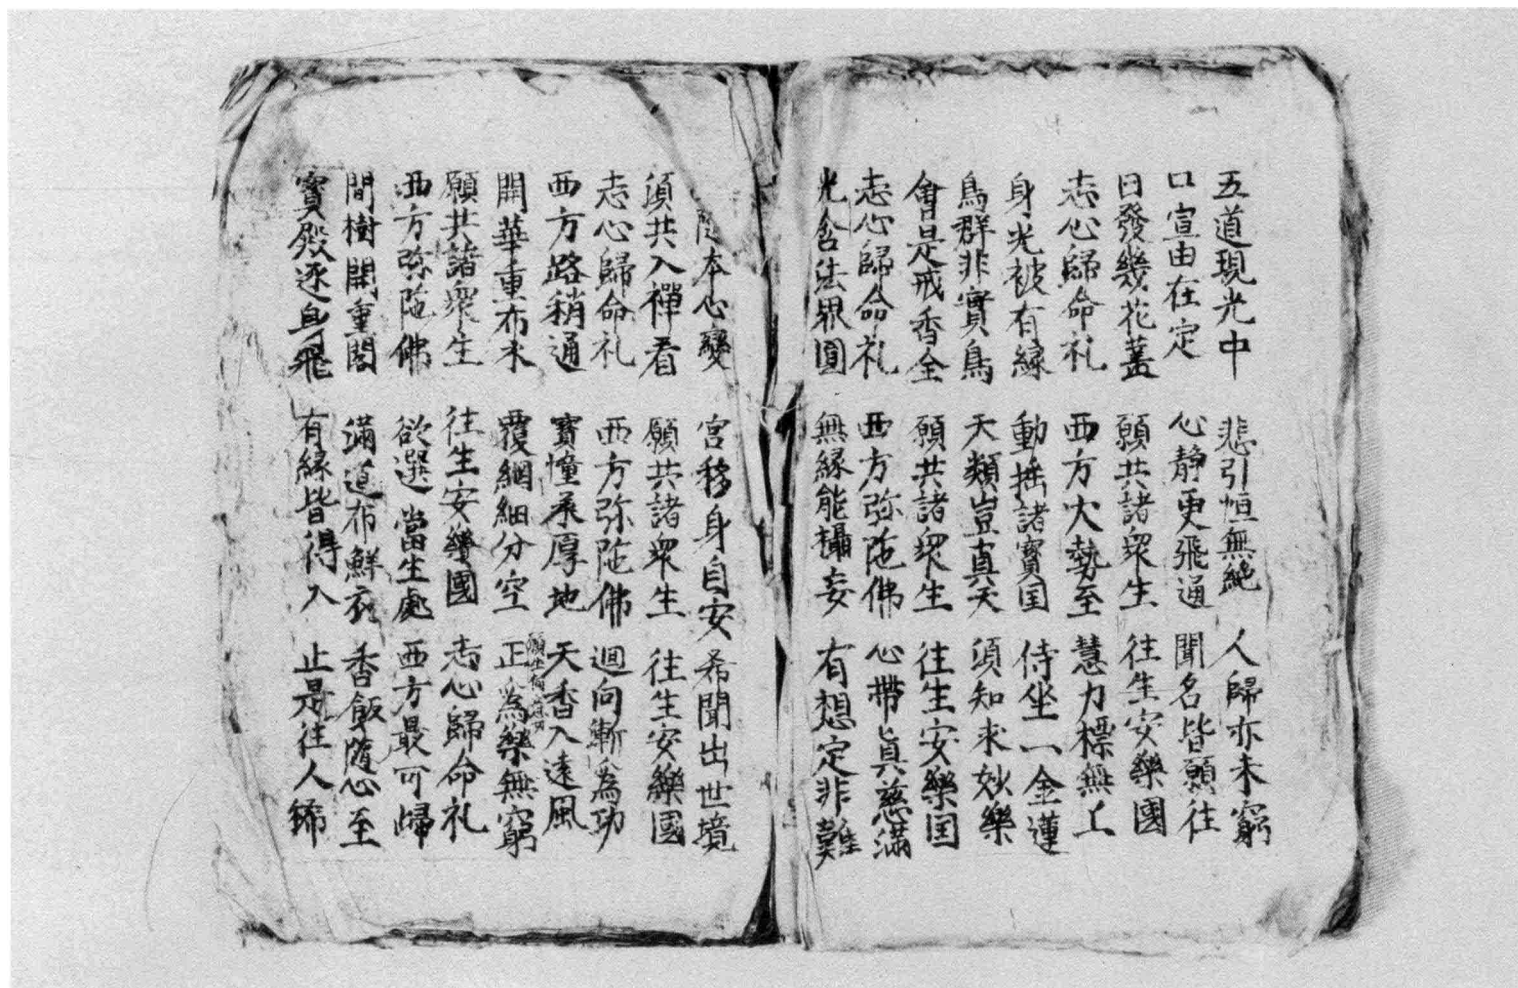 五道現光中 悲引恒無絶 人歸亦未窮
口宣由在定 心静更飛通 聞名皆願往
日發幾花蓋 願共諸衆生 往生安樂國
志心歸命礼 西方大勢至 慧力標無上
身光被有緣 動揺諸寳国 侍坐一金蓮
鳥群非實鳥 天類豈真天 須知求妙樂
會是戒香全 願共諸衆生 往生安樂国
志心歸命礼 西方弥陁佛 心帶真慈滿
光含法界圓 無縁能攝妄 有想定非難
随本心變 宮移身自安 希聞出世境
須共入禪看 願共諸衆生 往生安樂國
志心歸命礼 西方弥陁佛 迴向漸為功
西方路稍通 寳幢承厚地 天香入遠風
開華重布水 覆網細分空 願生何 正為樂無窮
願共諸衆生 往生安樂國 志心歸命礼
西方弥陁佛 欲選當生處 西方最可歸
間樹開重閣 滿道布鮮衣 香飯随心至
寳殿逐身飛 有緣皆得入 止是往人稀